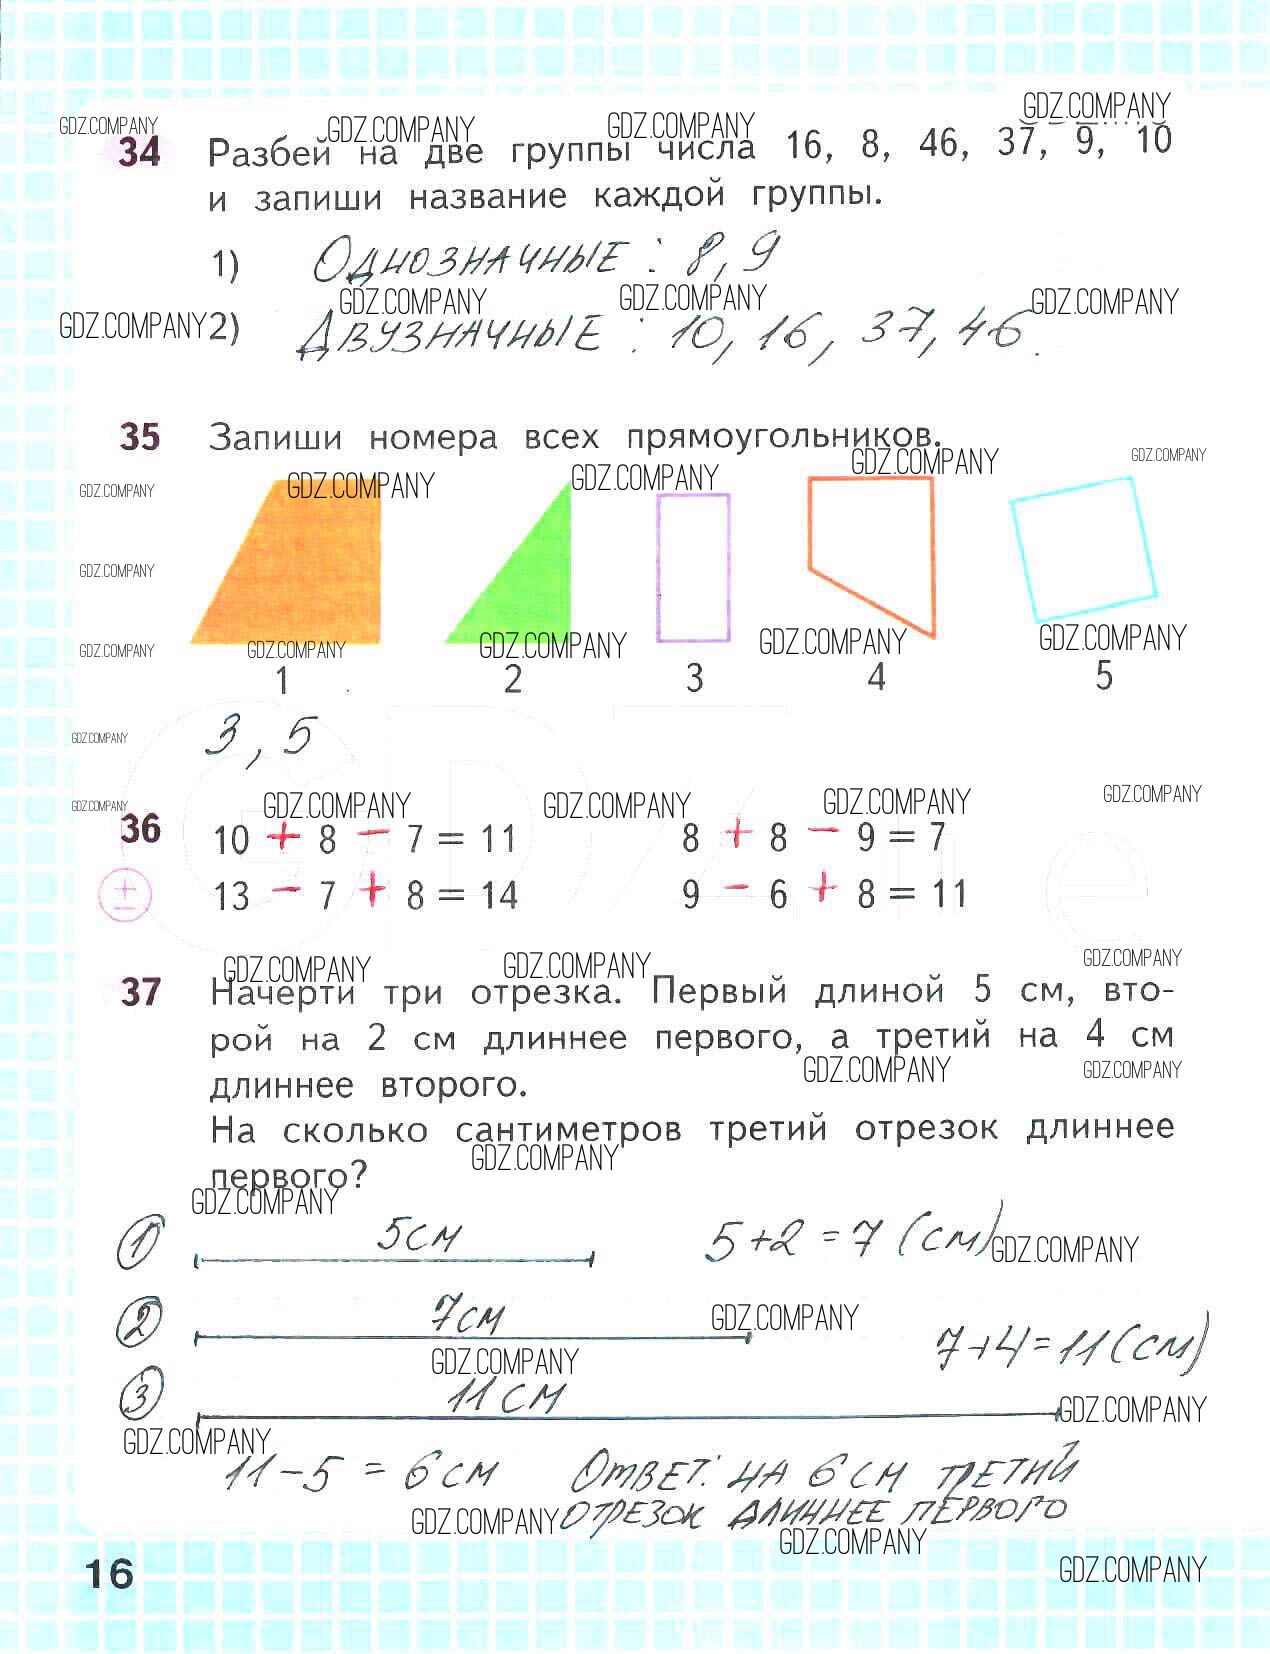 GDZ.COMPANY
GDZ.COMPANY GDZ.COMPANY GDZ.COMPANY
34 Разбей на две группы числа 16, 8, 46, 37, 9, 10
и запиши название каждой группы.
1) Однозначные : 8, 9
GDZ.COMPANY GDZ.COMPANY GDZ.COMPANY
GDZ.COMPANY 2) Двузначные : 10, 16, 37, 46.
35 Запиши номера всех прямоугольников.
GDZ.COMPANY GDZ.COMPANY
GDZ.COMPANY GDZ.COMPANY GDZ.COMPANY
GDZ.COMPANY
GDZ.COMPANY GDZ.COMPANY GDZ.COMPANY GDZ.COMPANY GDZ.COMPANY
1 2 3 4 5
GDZ.COMPANY 3, 5
GDZ.COMPANY GDZ.COMPANY GDZ.COMPANY GDZ.COMPANY GDZ.COMPANY
36 10 + 8 − 7 = 11 8 + 8 − 9 = 7
± 13 − 7 + 8 = 14 9 − 6 + 8 = 11
GDZ.COMPANY GDZ.COMPANY GDZ.COMPANY
37 Начерти три отрезка. Первый длиной 5 см, вто-
рой на 2 см длиннее первого, а третий на 4 см
GDZ.COMPANY GDZ.COMPANY
длиннее второго.
На сколько сантиметров третий отрезок длиннее
GDZ.COMPANY
первого?
GDZ.COMPANY
1 5см 5+2=7 (см) GDZ.COMPANY
2 7см GDZ.COMPANY
7+4=11(см)
GDZ.COMPANY
3 11см GDZ.COMPANY
GDZ.COMPANY
11−5 = 6см Ответ: на 6 см третий
GDZ.COMPANY отрезок длиннее первого
GDZ.COMPANY
16 GDZ.COMPANY